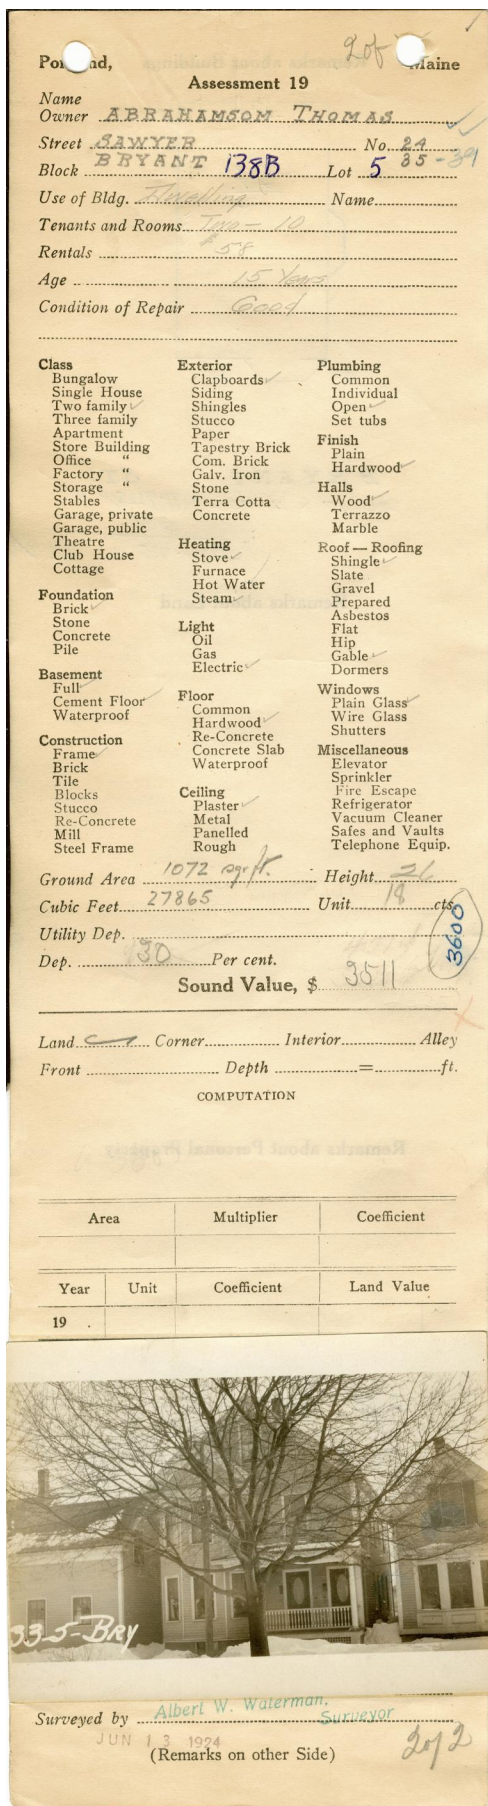 2 of
Portland, Maine
Assessment 19
Name
Owner ABRAHAMSOM THOMAS
Street SAWYER No. 24
BRYANT 35-39
Block 138B Lot 5
Use of Bldg. Dwelling Name
Tenants and Rooms Two - 10
Rentals $58
Age 15 Years
Condition of Repair Good
Class
Bungalow
Single House
Two family ✓
Three family
Apartment
Store Building
Office "
Factory "
Storage "
Stables
Garage, private
Garage, public
Theatre
Club House
Cottage
Foundation
Brick ✓
Stone
Concrete
Pile
Basement
Full ✓
Cement Floor ✓
Waterproof
Construction
Frame ✓
Brick
Tile
Blocks
Stucco
Re-Concrete
Mill
Steel Frame
Exterior
Clapboards ✓
Siding
Shingles
Stucco
Paper
Tapestry Brick
Com. Brick
Galv. Iron
Stone
Terra Cotta
Concrete
Heating
Stove ✓
Furnace
Hot Water
Steam ✓
Light
Oil
Gas
Electric ✓
Floor
Common
Hardwood ✓
Re-Concrete
Concrete Slab
Waterproof
Ceiling
Plaster ✓
Metal
Panelled
Rough
Plumbing
Common
Individual
Open ✓
Set tubs
Finish
Plain
Hardwood ✓
Halls
Wood ✓
Terrazzo
Marble
Roof — Roofing
Shingle ✓
Slate
Gravel
Prepared
Asbestos
Flat
Hip
Gable ✓
Dormers
Windows
Plain Glass ✓
Wire Glass
Shutters
Miscellaneous
Elevator
Sprinkler
Fire Escape
Refrigerator
Vacuum Cleaner
Safes and Vaults
Telephone Equip.
Ground Area 1072 sqr ft. Height 26
Cubic Feet 27865 Unit 18 cts.
Utility Dep.
3600
Dep. 30 Per cent.
Sound Value, $ 3511
Land Corner Interior Alley
Front Depth = ft.
COMPUTATION
Area Multiplier Coefficient
Year Unit Coefficient Land Value
19 .
335-BRY
Surveyed by Albert W. Waterman,
Surveyor
JUN 13 1924
(Remarks on other Side)
2 of 2